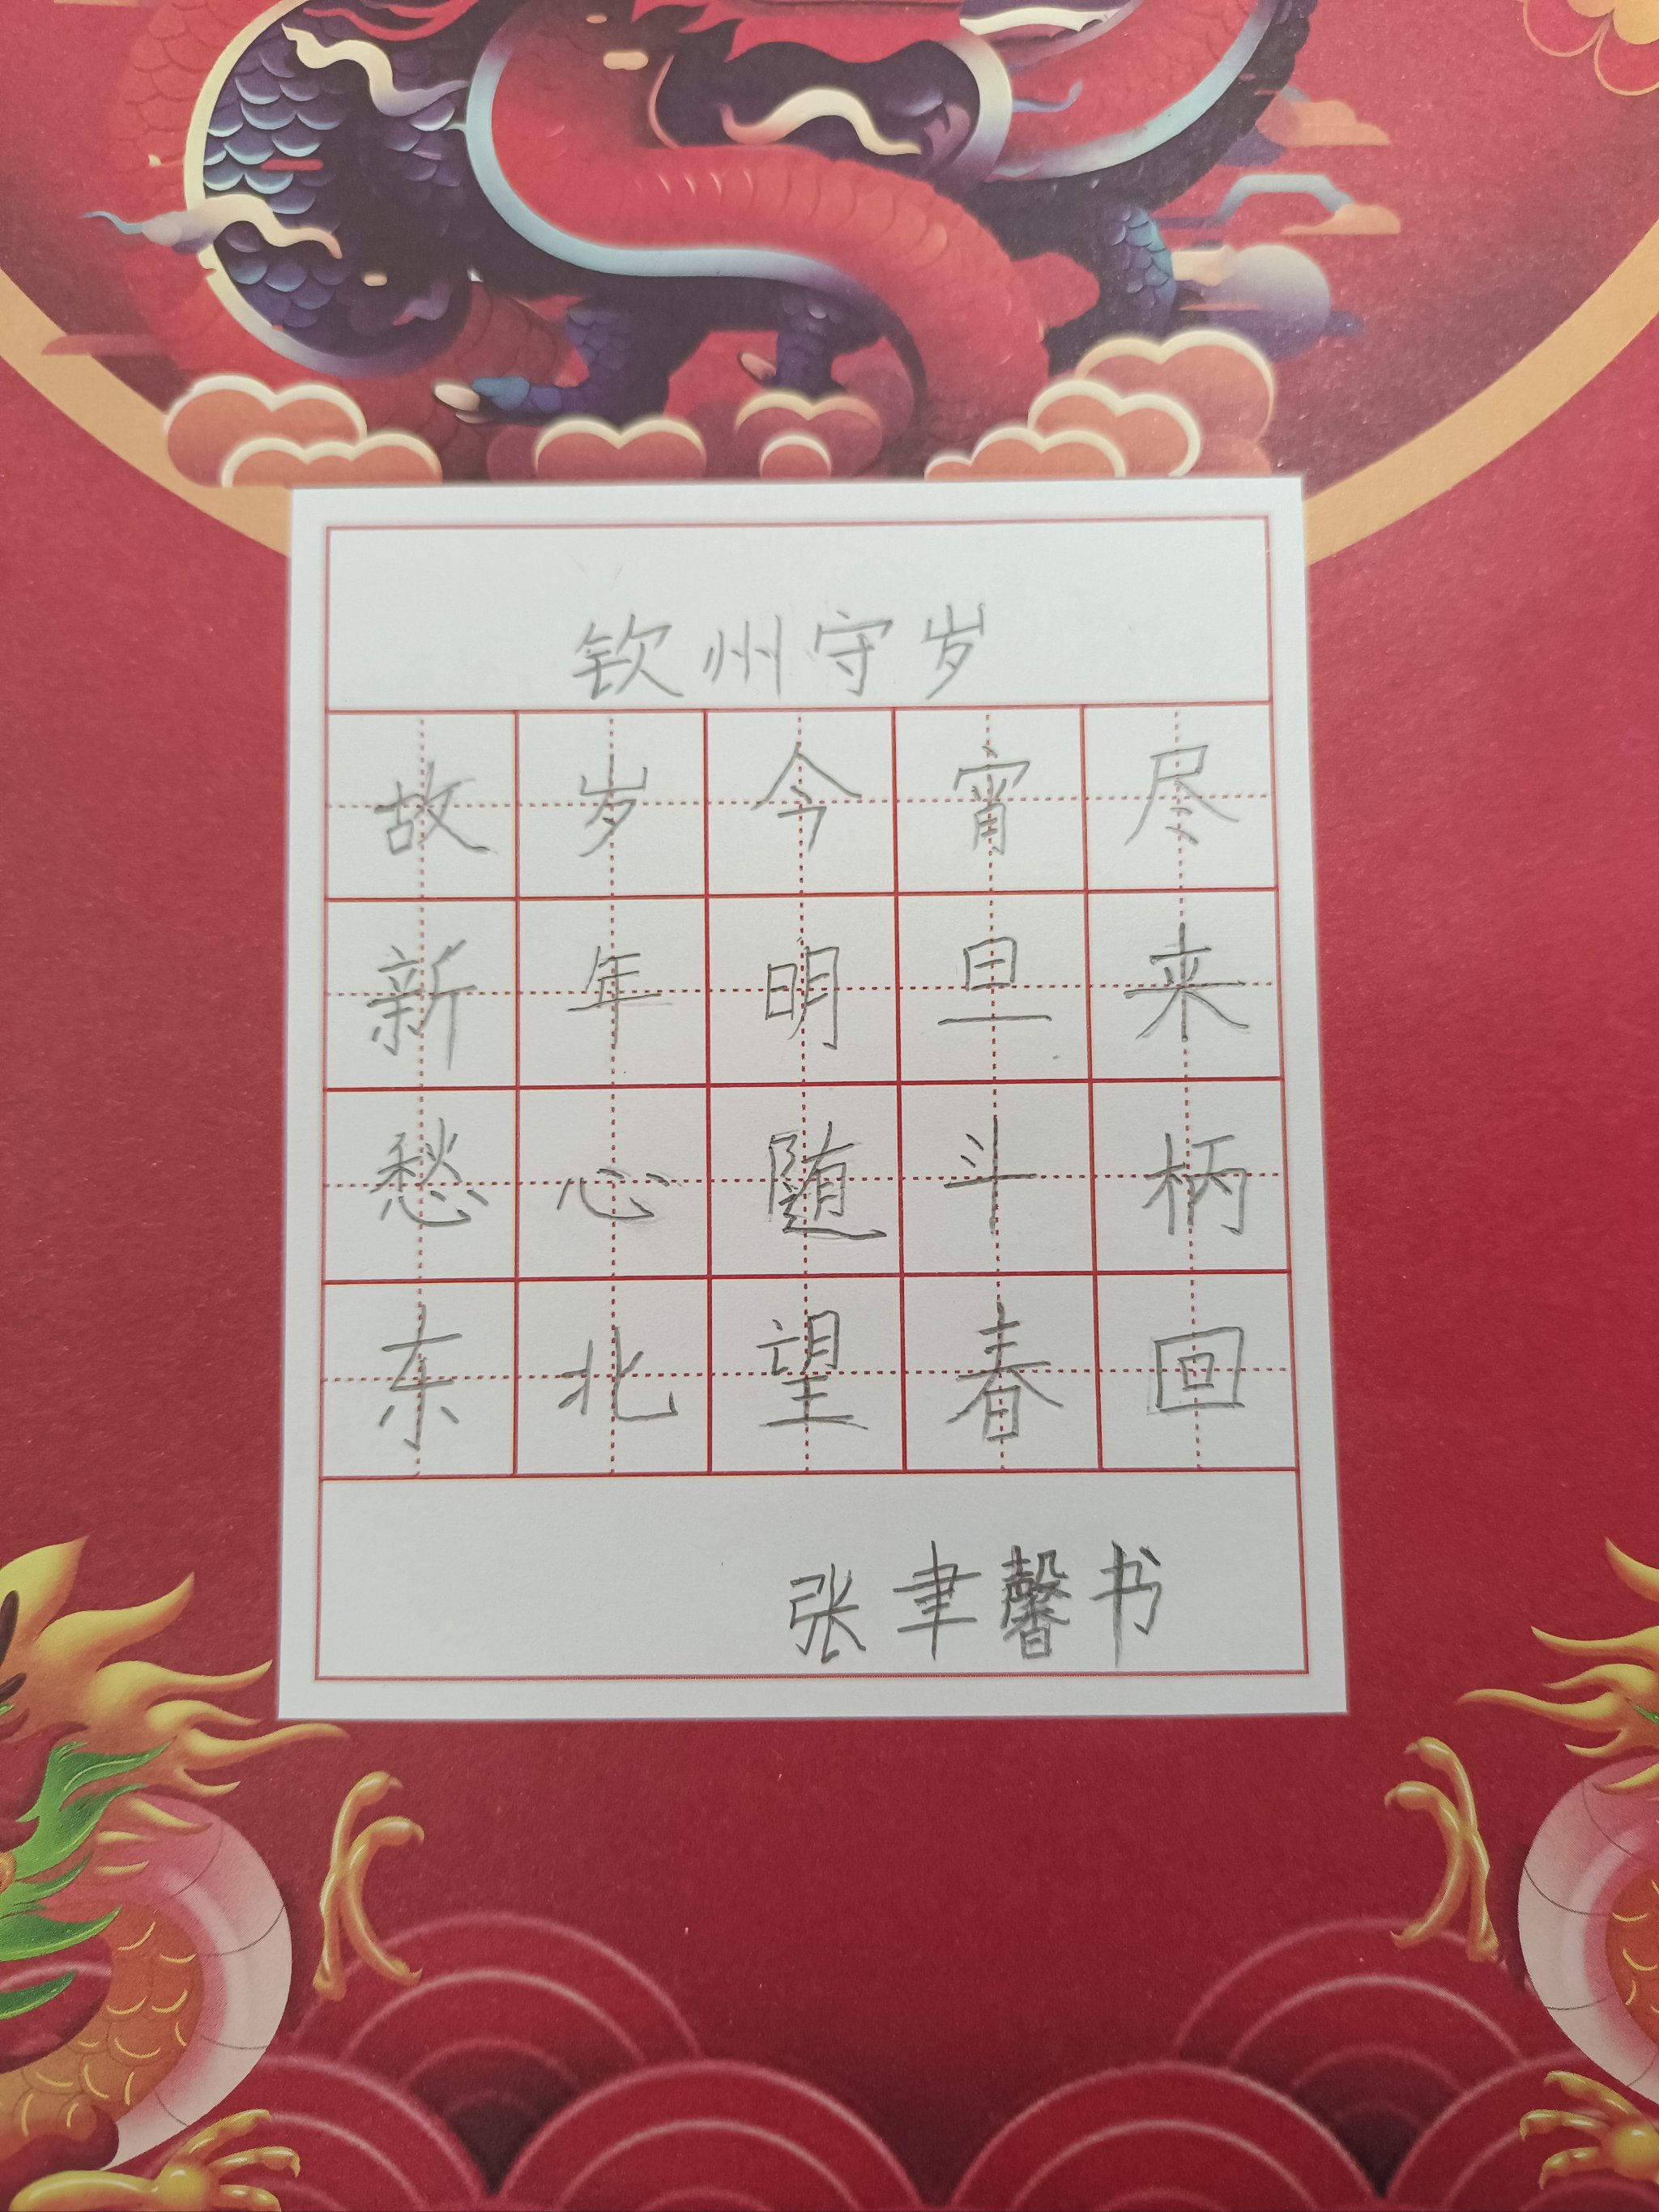 钦州守岁
故岁今宵尽
新年明旦来
愁心随斗柄
东北望春回
张聿馨书